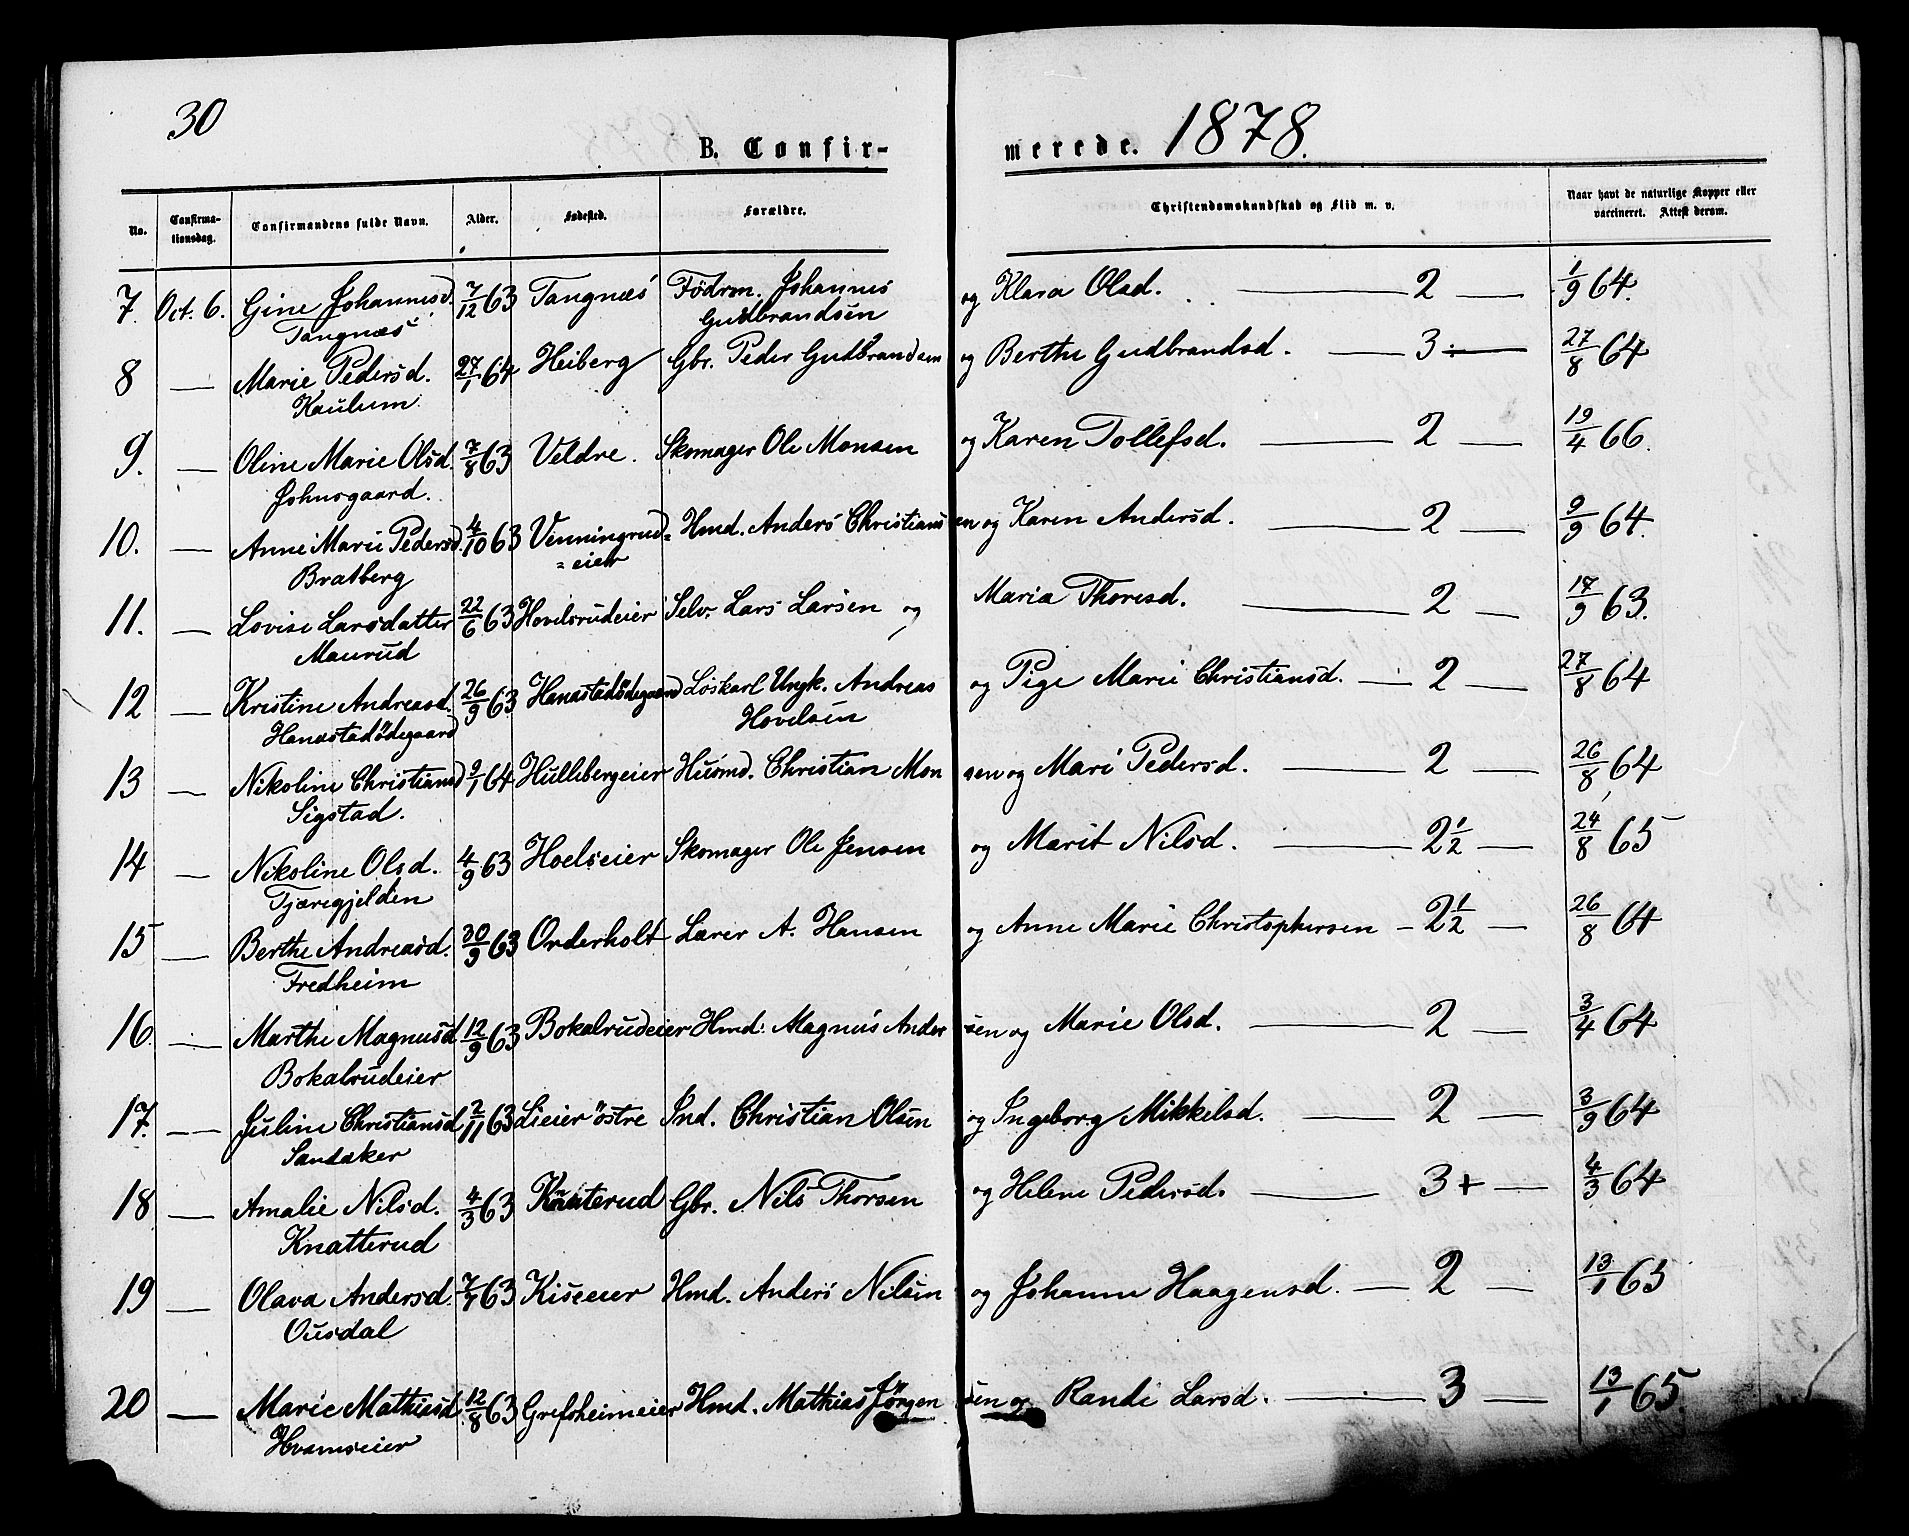 30
B. Confirmerede. 1878.
No. Confirmationsdag. Confirmandens fulde Navn. Alder. Fødested. Forældre. Christendomskundskab og Flid m. v. Naar havt de naturlige Kopper eller vaccineret. Attest derom.
7. Oct. 6. Gine Johannesd. 7/12 63 Tangnæs Födrm. Johannes og Klara Olsd. — 2 — 1/9 64.
Tangnæs Gudbrandsen
8 — Marie Pedersd. 27/1 64 Heiberg Gbr. Peder Gudbrandsen og Berthe Gudbrandsd. — 3 ÷ — 27/8 64
Kaulum
9. — Oline Marie Olsd. 7/8 63 Veldre. Skomager Ole Monsen og Karen Tollefsd. — 2 — 19/4 66.
Johnsgaard.
10. — Anne Marie Pedersd. 4/10 63 Venningrud= Hmd. Anders Christiansen og Karen Andersd. — 2 — 9/9 64.
Bratberg =eier
11. — Lovise Larsdatter 22/6 63 Hovelsrudeier Selv. Lars Larsen og Maria Thoresd. — 2 — 17/9 63.
Maurud
12 — Kristine Andreasd. 26/9 63 Hanestadödegaard Löskarl Ungk. Andreas og Pige Marie Christiansd. — 2 — 27/8 64
Hanestadödegaard Hovelsen
13 — Nikoline Christiansd 9/1 64 Hullebergeier Husmd. Christian Monsen og Mari Pedersd. — 2 — 26/8 64
Sigstad.
14 — Nikoline Olsd. 4/9 63 Hoelseier Skomager Ole Jensen og Marit Nilsd. — 2 1/2 — 24/8 65
Tjæregjelden
15 — Berthe Andreasd. 30/9 63 Orderholt Lærer A. Hansen og Anne Marie Christophersen — 2 1/2 — 26/8 64
Fredheim
16 — Marthe Magnusd 12/9 63 Bokalrudeier Hmd. Magnus Andersen og Marie Olsd. — 2 — 3/4 64
Bokalrudeier
17. — Juline Christiansd 2/11 63 Lieier östre Ind. Christian Olsen og Ingeborg Mikkelsd. — 2 — 3/9 64
Sandaker
18 — Amalie Nilsd. 4/3 63 Knatterud Gbr. Nils Thorsen og Helene Pedersd. — 3 + — 4/3 64
Knatterud
19 — Olava Andersd. 63 Kiseeier Hmd. Anders Nilsen og Johanne Haagensd. — 2 — 13/1 65
Ousdal
20 — Marie Mathiasd 12/8 63 Grefsheimeier Hmd. Mathias Jörgensen og Randi Larsd. — 3 — 13/1 65.
Hvamseier